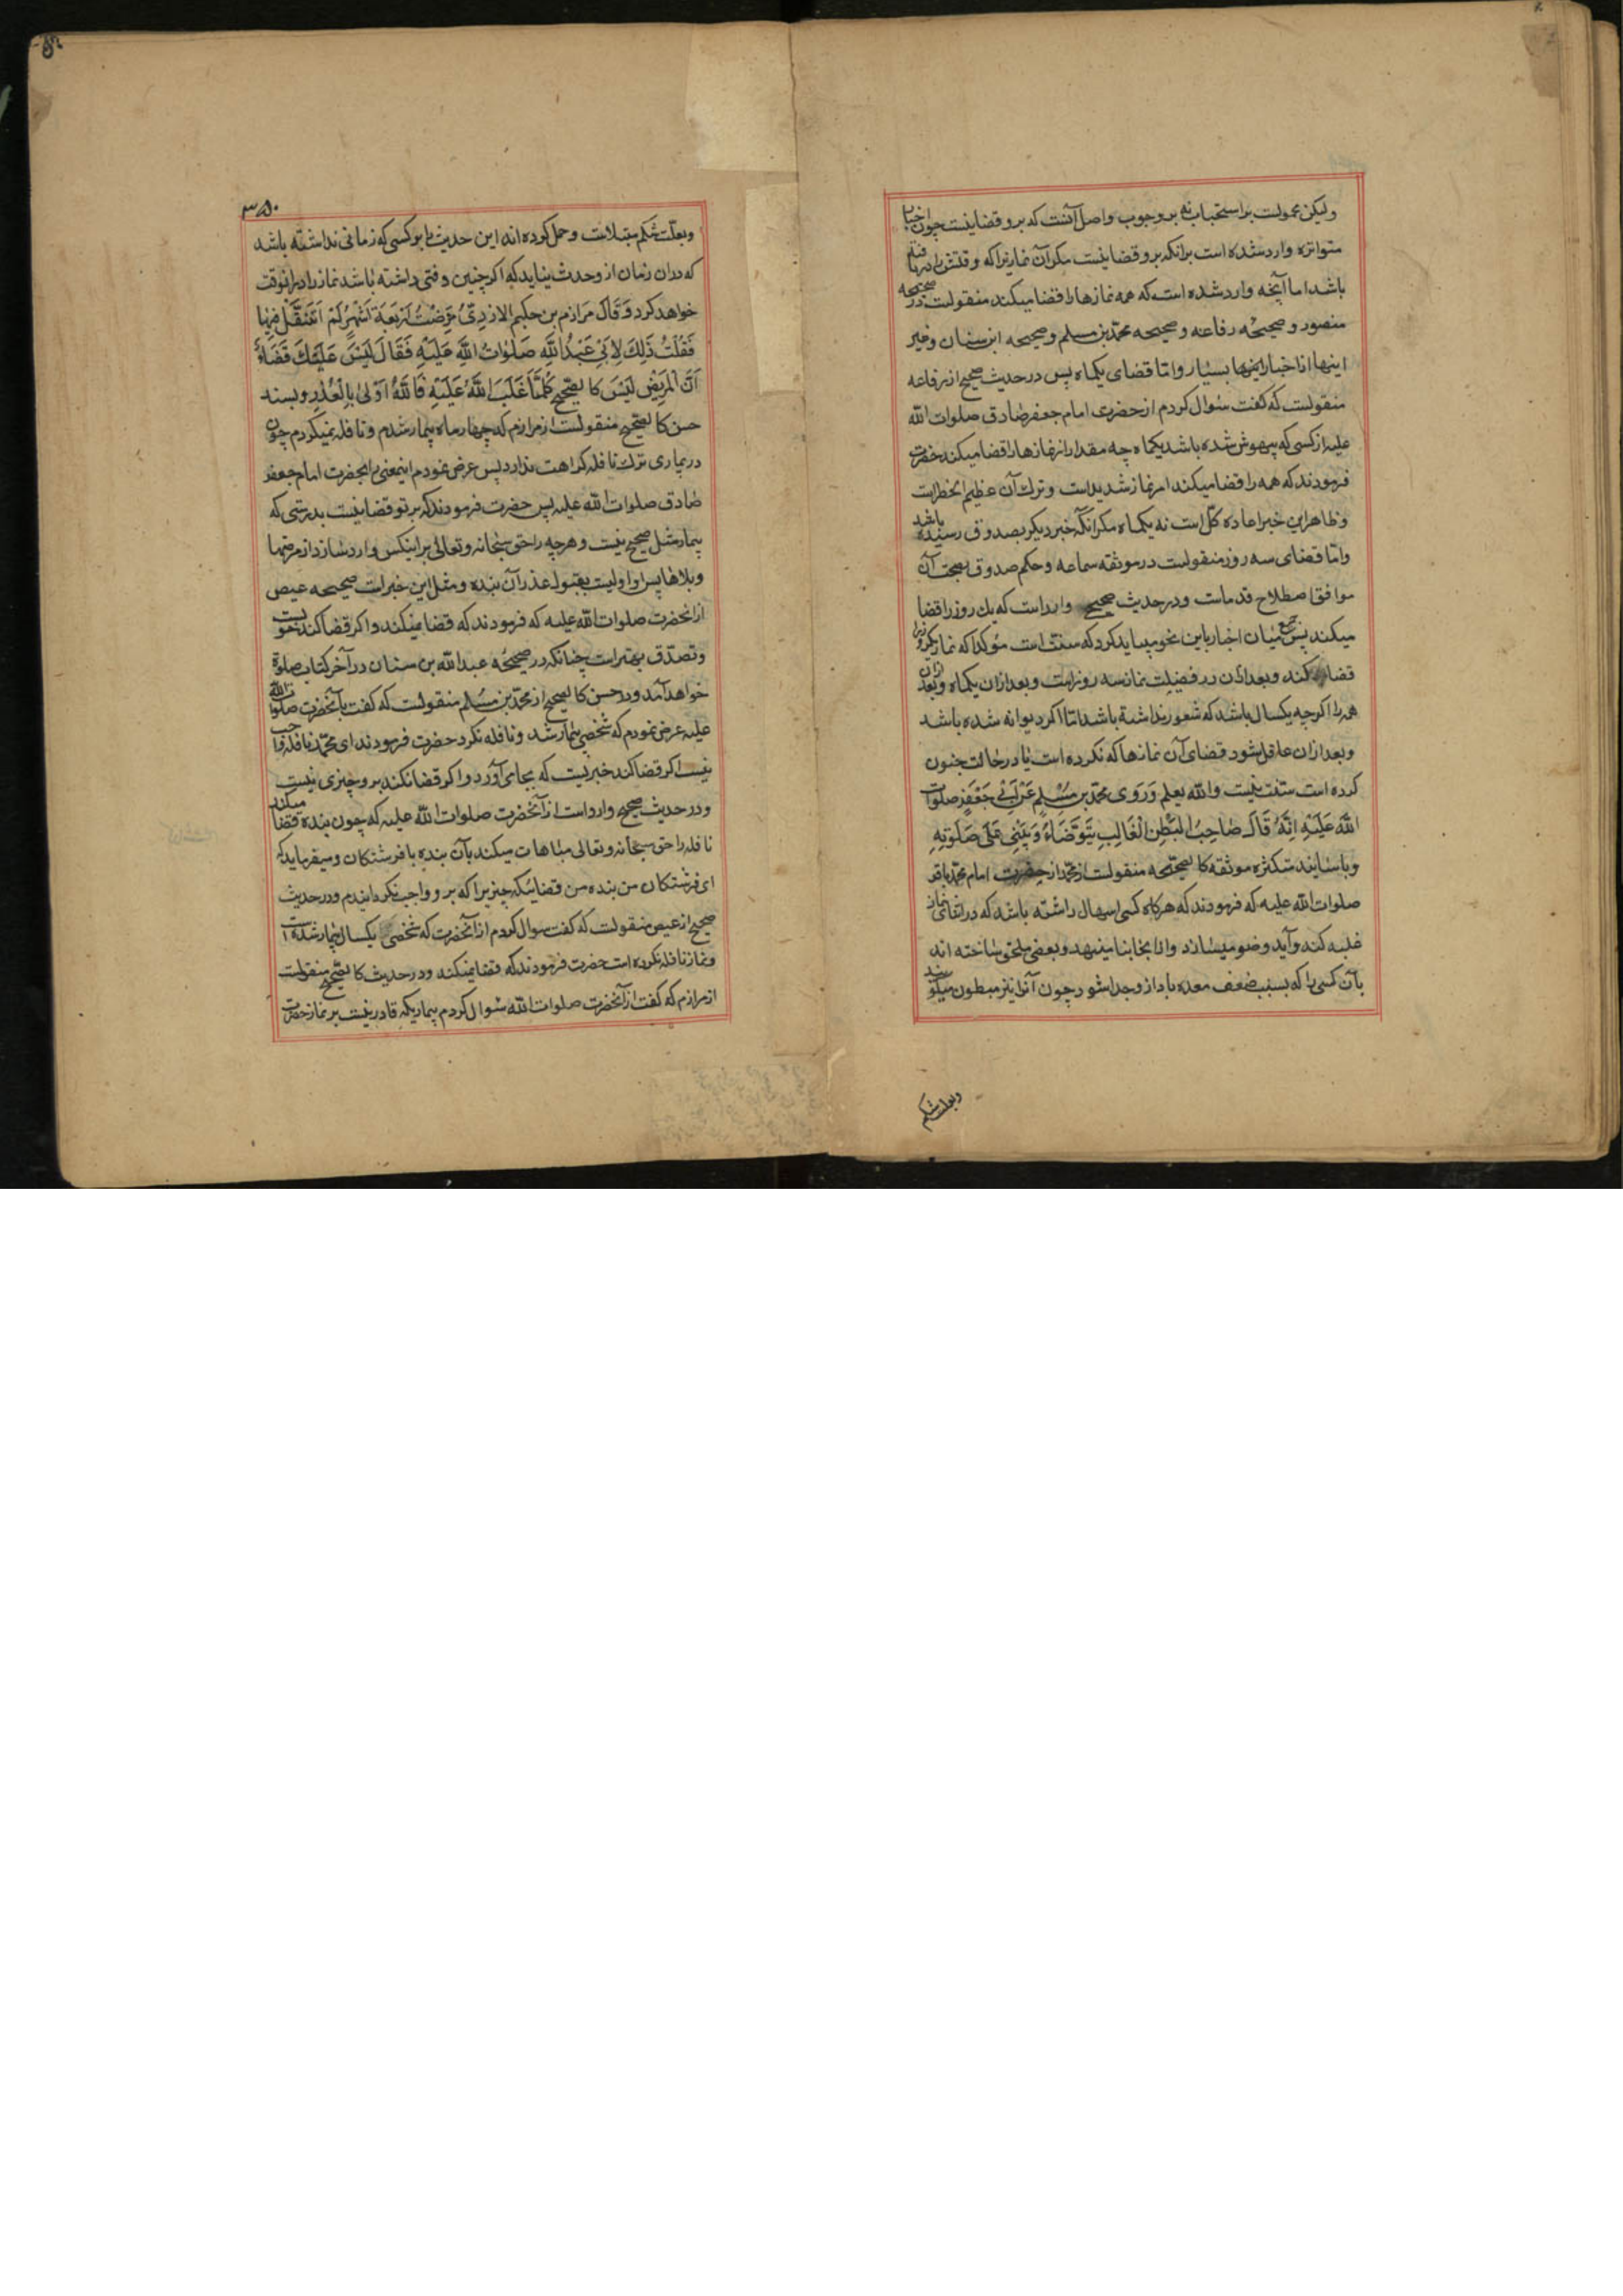 ولیکن محمولست بر استحباب نه بر وجوب واصل آنست که برو قضا نیست چون اخبار
متواتره وارد شده است برانکه برو قضا نیست مکر آن نماریرا که وقتش را دریافته
باشد اما آنچه وارد شده است که همه نمازها را قضا میکند منقولست در صحیحه
منصور و صحیحه رفاعه و صحیحه محمد بن مسلم و صحیحه ابن سنان وغیر
اینها از اخبار اینها بسیار واما قضای یکماه پس در حدیث صحیح از رفاعه
منقولست که کفت سئوال کردم از حضرت امام جعفر صادق صلوات الله
علیه از کسی که بیهوش شده باشد یکماه چه مقدار از نمازها را قضا میکند حضرت
فرمودند که همه را قضا میکند امر نماز شدیداست وترک آن عظیم الخطر است
وظاهر این خبر اعاده کل است نه یکماه مکر انکه خبر دیکر بصدوق رسیده باشد
واما قضای سه روز منقولست در موثقه سماعه وحکم صدوق بصحت آن
موافق اصطلاح قدماست ودر حدیث صحیح وارد است که یک روز را قضا
میکند پس جمع میان اخبار باین نحو میباید کرد که سنت است مؤکدا که نماز یکروزرا
قضا کند وبعد ازان در فضیلت نماز سه روز است وبعد ازان یکماه وبعد ازان
همه را اکرچه یکسال باشد که شعور نداشته باشد اما اکر دیوانه شده باشد
وبعد ازان عاقل شود قضای آن نمازها که نکرده است یا در حالت جنون
کرده است سنت نیست والله یعلم وَرَوی محمّد بن مُسْلِمٍ عَنْ اَبی جَعْفَرٍ صلوات
اللهِ عَلَیْهِ اِنَّهُ قَالَ صَاحِبُ الْبَطَنِ الْغَالِبِ یَتَوَضَّاءُ وَیَبْنی عَلَی صَلَوتِهِ
وباسانید متکثره موثقه کالصحیحه منقولست از محمد از حضرت امام محمد باقر
صلوات الله علیه که فرمودند که هرکاه کسی اسهال داشته باشد که در اثنای نماز
غلبه کند وآید وضو میسازد واز انجا بنا مینهد وبعضی ملحق ساخته اند
بآن کسی را که بسبب ضعف معده باد ازو جدا شود چون آنرا نیز مبطون میکویند
وبعلت شکم
۳۵۰
وبعلّت شکم مبتلاست وحمل کرده اند این حدیث را بر کسی که زمانی نداشته باشد
که دران زمان ازو حدث نیاید که اکر چنین وقتی داشته باشد نماز را دران وقت
خواهد کرد وَقَالَ مَرَازِم بن حکیم الازدِیُّ مَرِضْتُ اَرْبَعَةَ اَشْهُرٍ لَمْ اَتَنَفَّلْ فِیهَا
فَقُلْتُ ذَلِکَ لِاَبی عَبْدِ اللهِ صَلَوَاتُ اللهِ عَلَیْهِ فَقَالَ لَیْسَ عَلَیْکَ قَضَاءٌ
اَنَّ الْمَرِیْضَ لَیْسَ کالصَّحِیحِ کُلَّمَا غَلَبَ اللهُ عَلَیْهِ فَاللهُ اَوْلیٰ بِالْعُذْرِ وبسند
حسن کالصحیح منقولست از مرازم که چهار ماه بیمار شدم ونافله نمیکردم چون
در بیماری ترک نافله کراهت ندارد پس عرض نمودم اینمعنی را بحضرت امام جعفر
صادق صلوات الله علیه پس حضرت فرمودند که بر تو قضا نیست بدرستی که
بیمار مثل صحیح نیست وهرچه را حق سبحانه وتعالی بر اینکس وارد سازد از مرضها
وبلاها پس او اولیست بقبول عذر آن بنده ومثل این خبر است صحیحه عیص
از انحضرت صلوات الله علیه که فرمودند که قضا نمیکند واکر قضا کند خوبست
وتصدّق بهتر است چنانکه در صحیحه عبد الله بن سنان در آخر کتاب صلوة
خواهد آمد ودر حسن کالصحیح از محمد بن مسلم منقولست که کفت بآنحضرت صلوات الله
علیه عرض نمودم که شخصی بیمار شد ونافله نکرد حضرت فرمودند ای محمد نافله واجب
نیست اکر قضا کند خیریست که بجا می آورد واکر قضا نکند برو چیزی نیست
ودر حدیث صحیح وارد است از آنحضرت صلوات الله علیه که چون بنده قضا میکند
نافله را حق سبحانه وتعالی مباهات میکند بآن بنده با فرشتکان ومیفرماید که
ای فرشتکان من بنده من قضا میکند چیزیرا که برو واجب نکردانیدم ودر حدیث
صحیح از عیص منقولست که کفت سوال کردم از آنحضرت که شخصی یکسال بیمار شده است
ونماز نافله نکرده است حضرت فرمودند که قضا نمیکند ودر حدیث کالصحیح منقولست
از مرازم که کفت از آنحضرت صلوات الله سئوال کردم بیماریکه قادر نیست بر نماز حضرت